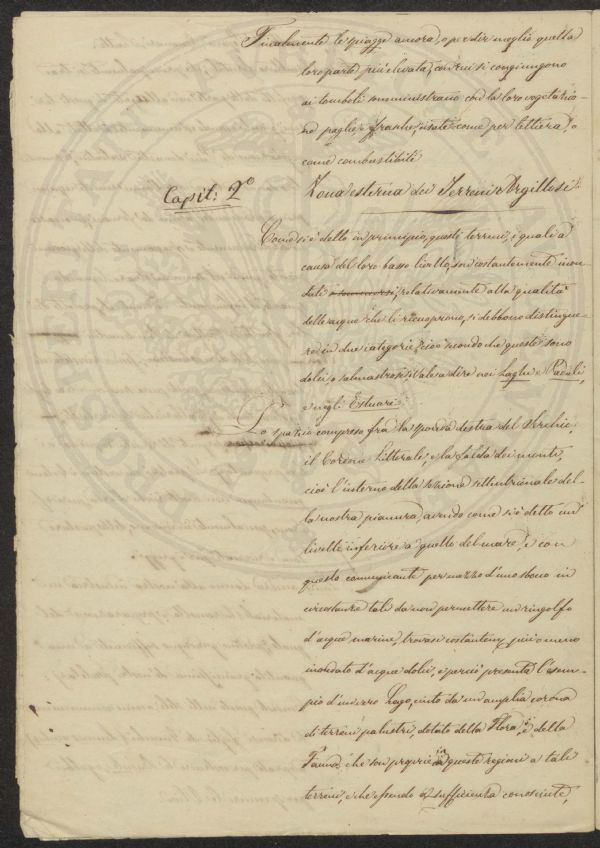 Finalmente le spiagge ancora, o per dir meglio quella
loro parte più elevata, con cui si congiungono
ai tomboli somministrano con la loro vegetazio-
ne paglie, e frasche, usate come per lettiera, o
come combustibile
Capit: 2º
Zona esterna dei Terreni Argillosi
Come si è detto in principio, questi terreni, i quali a
causa del loro basso livello, son costantemente inon-
dati, relativamente alla qualità
delle acque che li ricuoprono, si debbono distingue-
re in due categorie, cioè secondo che queste sono
dolci, o salmastre; vale a dire nei Laghi e Paduli,
e negli Estuari.
Lo spazio compreso fra la sponda destra del Serchio,
il Cordone Litterale, e la falda dei monti,
cioè l'interno della sezione settentrionale del-
la nostra pianura, avendo come si è detto un
livello inferiore a quello del mare, e con
questo comunicante per mezzo d'uno sbocco in
circostanze tali da non permettere un ringolfo
d'acque marine, trovasi costantem. più o meno
inondato d'acque dolci, e perciò presenta l'esem-
pio d'un vero Lago, cinto da un'amplia corona
di terreni palustri, dotato della Flora, e della
Fauna, che son proprie in queste regioni a tali
terreni, e che essendo a sufficienza conosciute,